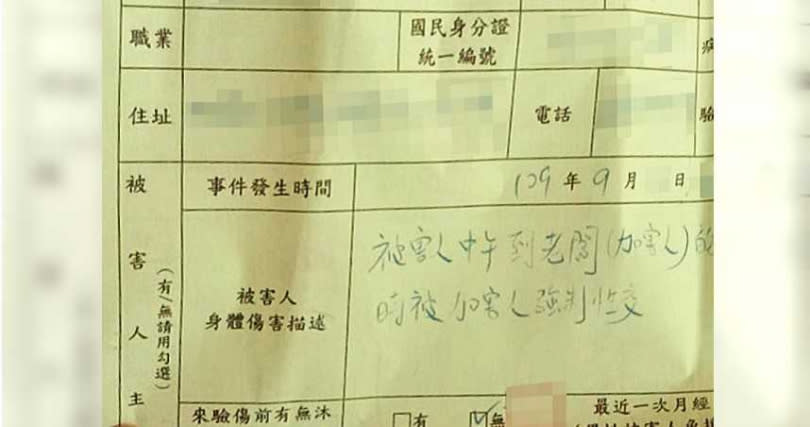 職業
國民身分證
統一編號
住址
電話
事件發生時間
109年9月 日
被害人主
(有/無請用勾選)
被害人
身體傷害描述
被害人中午到老闆(加害人)的
時被加害人強制性交
來驗傷前有無沐
□有 ☑無
最近一次月經